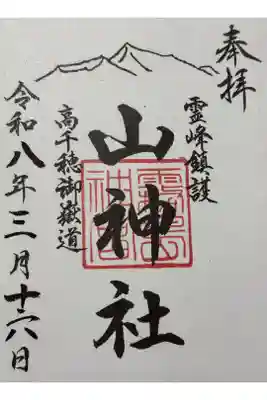 奉拝
霊峰鎮護
山神社
高千穂御嶽道
令和八年三月十六日